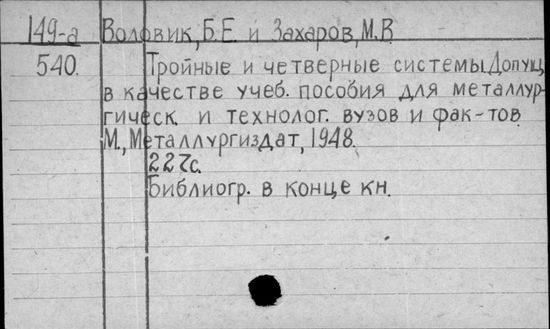 149-а Воловик, Б.Е. и Захаров, М.В.
540. Тройные и четверные системы. Допущ.
в качестве учеб. пособия для металлур-
гическ. и технолог. вузов и фак-тов
М., Металлургиздат, 1948.
227с.
Библиогр. в конце кн.